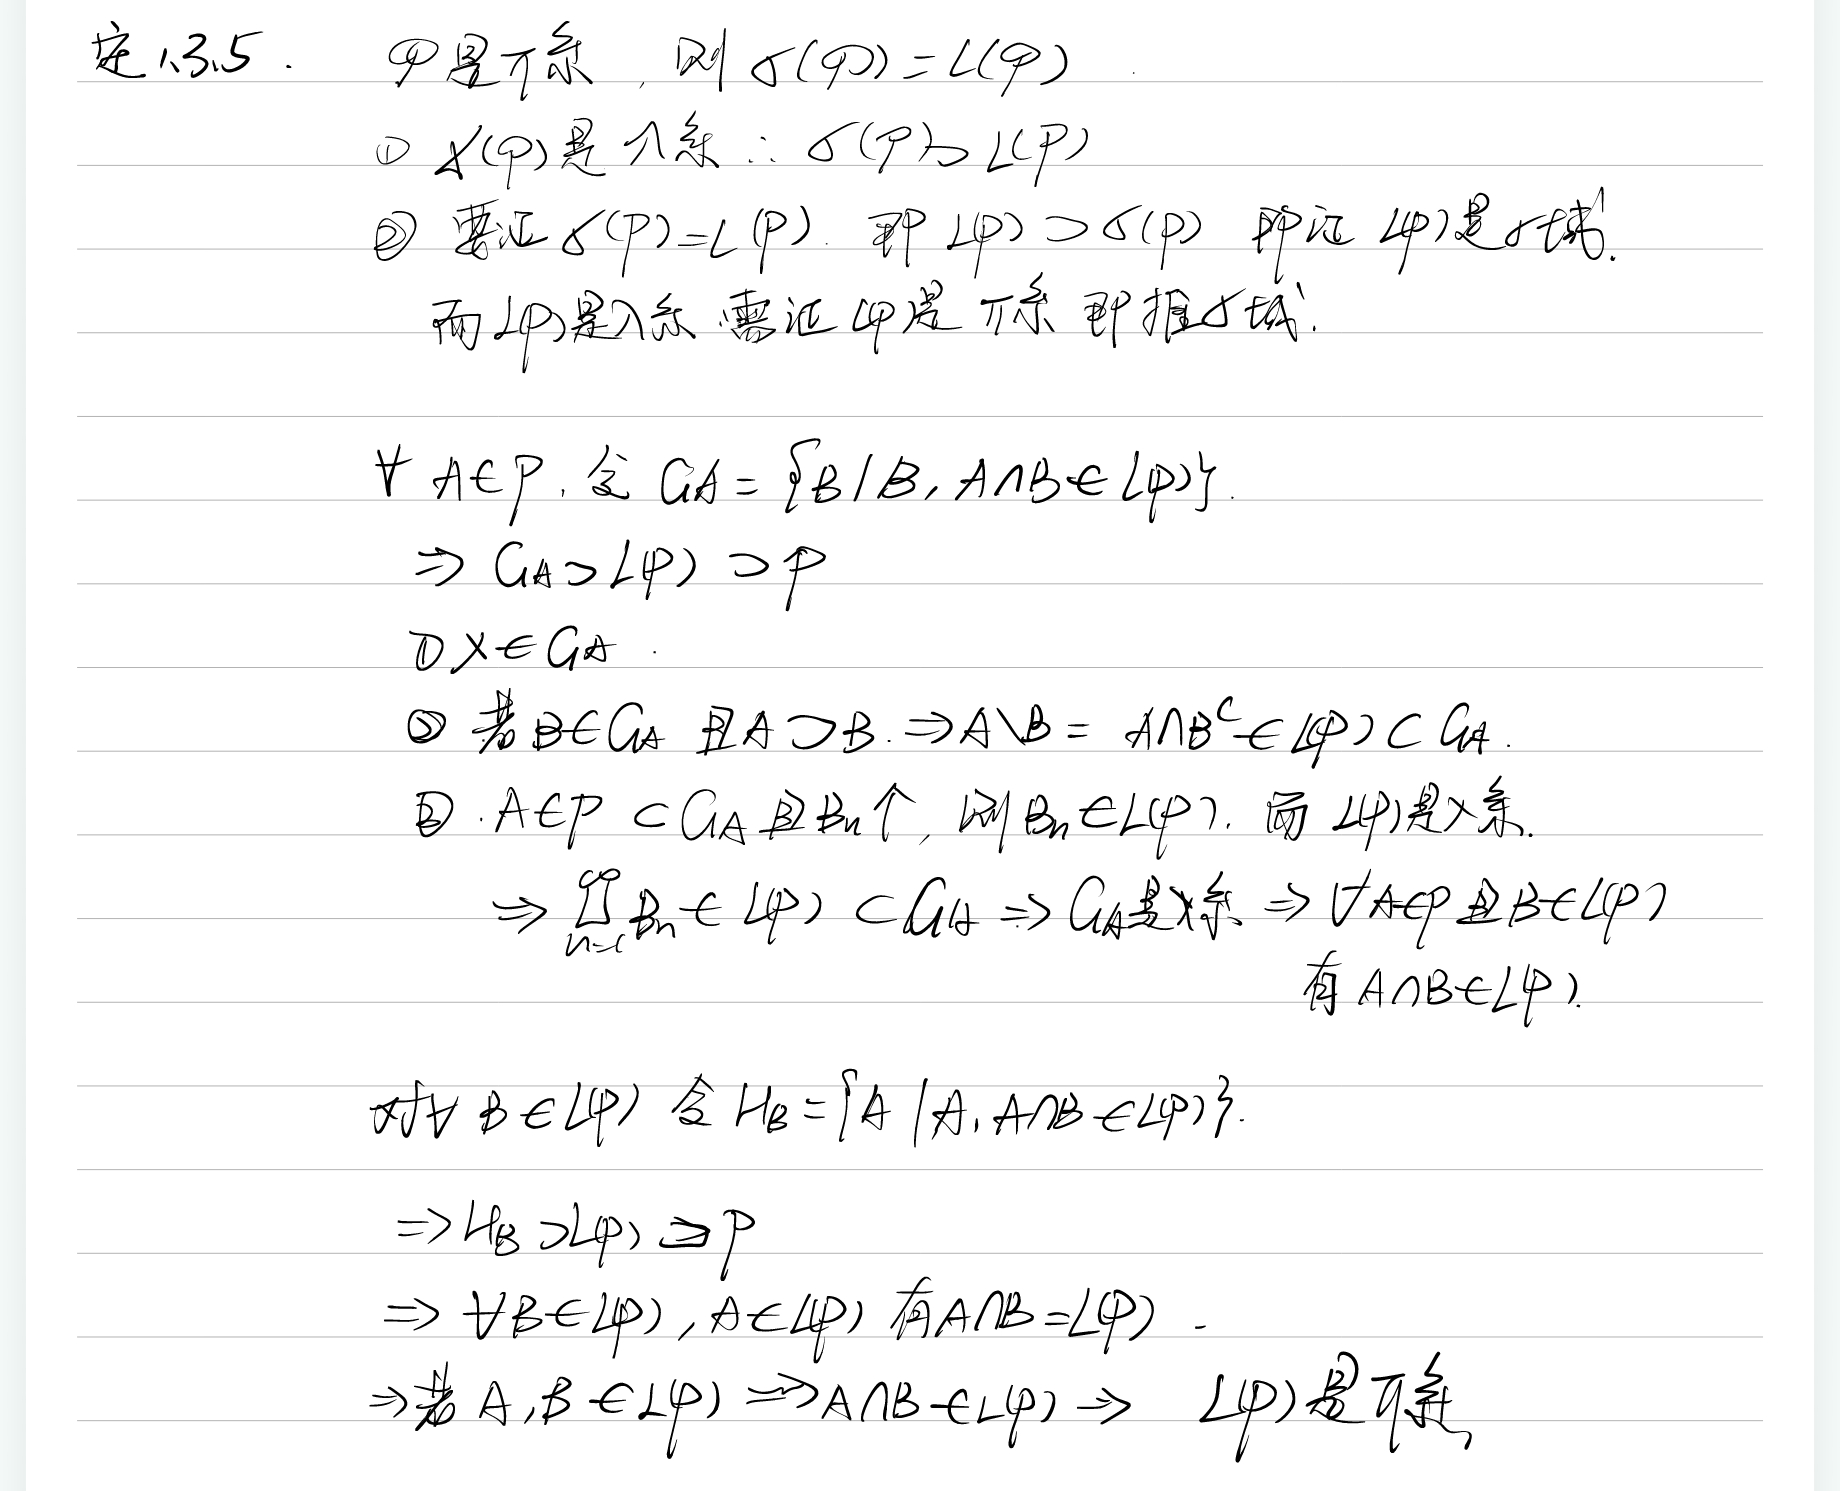 定1.3.5. 𝒫是π系，则 σ(𝒫)=L(𝒫)
① σ(𝒫)是λ系 ∴ σ(𝒫)⊃L(𝒫)
② 要证σ(𝒫)=L(𝒫). 即 L(𝒫)⊃σ(𝒫) 即证 L(𝒫)是σ域.
而L(𝒫)是λ系 需证 L(𝒫)是 π系 即推σ域.
∀ A∈𝒫. 令 G_A = {B|B, A∩B∈L(𝒫)}.
⇒ G_A⊃L(𝒫)⊃𝒫
① X∈G_A.
② 若B∈G_A 且A⊃B. ⇒A\B = A∩B^C∈L(𝒫)⊂G_A.
③. A∈𝒫⊂G_A 且B_n↑, 则B_n∈L(𝒫). 而 L(𝒫)是λ系.
⇒ ∪_{n=1}^∞ B_n∈L(𝒫)⊂G_A ⇒ G_A是λ系 ⇒ ∀A∈𝒫且B∈L(𝒫)
有 A∩B∈L(𝒫).
对∀ B∈L(𝒫) 令 H_B={A|A, A∩B∈L(𝒫)}.
⇒H_B⊃L(𝒫)⊃𝒫
⇒ ∀B∈L(𝒫), A∈L(𝒫) 有A∩B=L(𝒫).
⇒若 A,B∈L(𝒫) ⇒A∩B∈L(𝒫) ⇒ L(𝒫)是π系